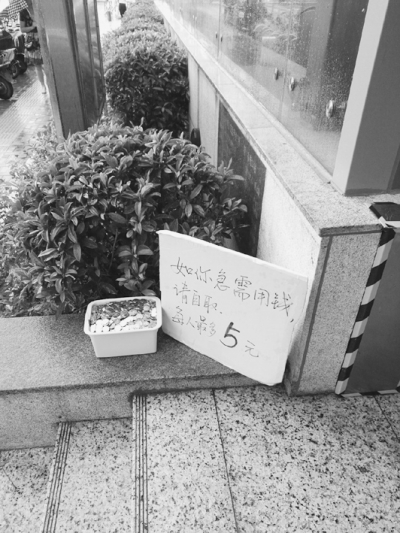 如你急需用钱,
请自取.
每人最多5元